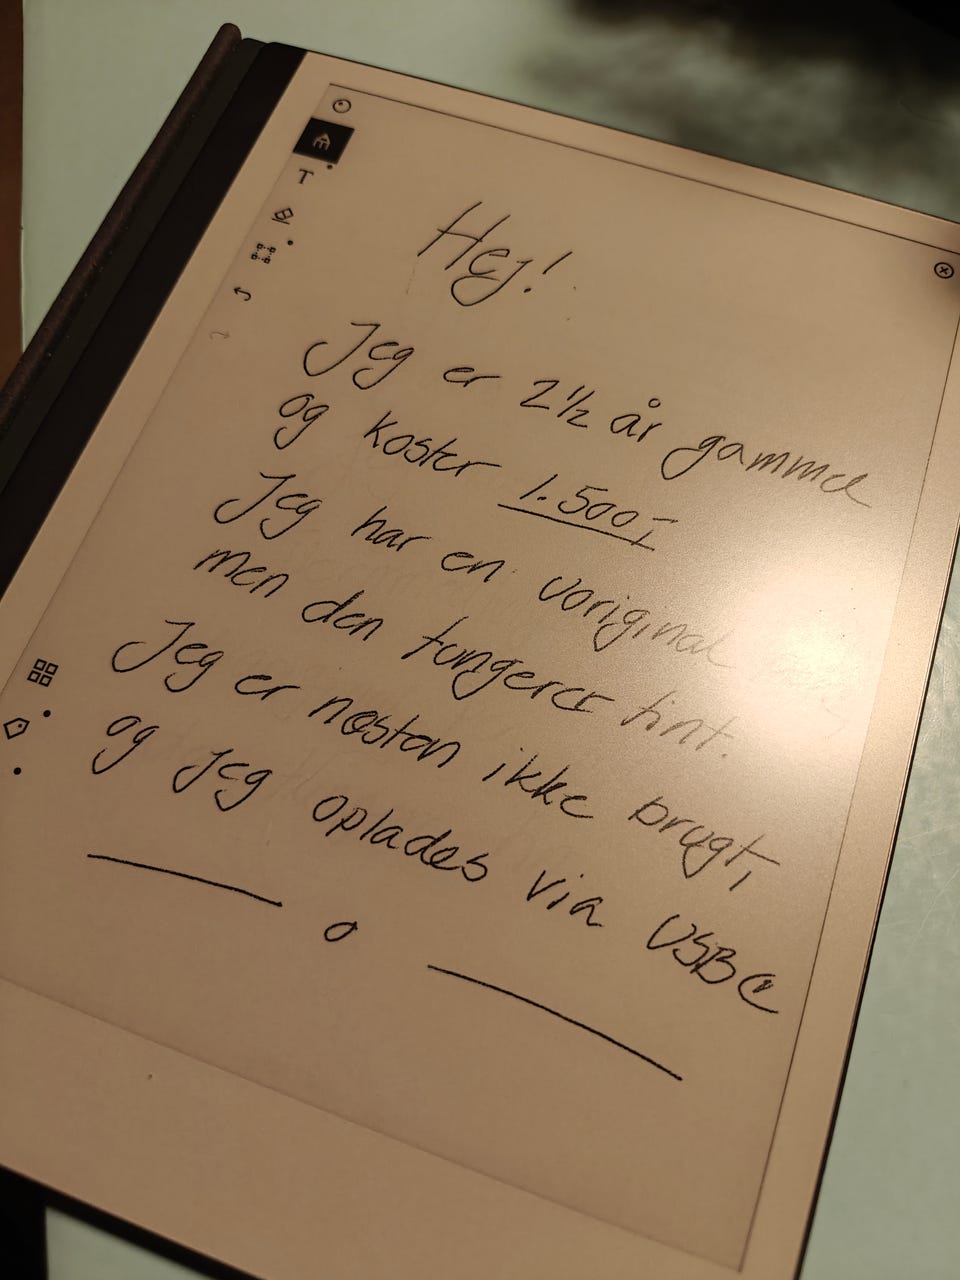 T
Hej!
Jeg er 2½ år gammel
og koster 1.500,-
Jeg har en uoriginal
men den fungerer fint.
Jeg er næsten ikke brugt,
og jeg oplades via USBC